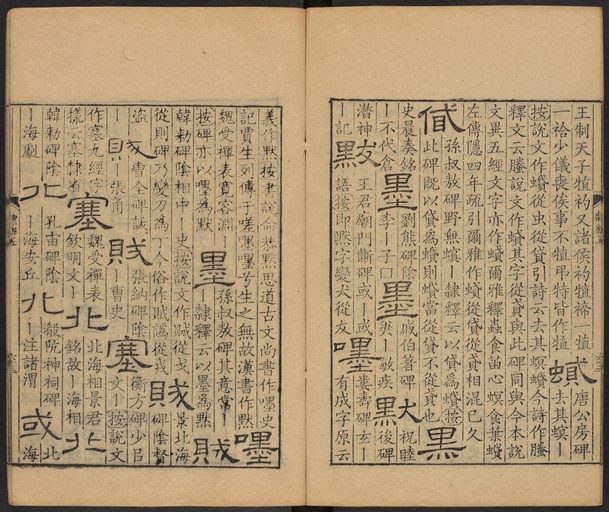 王制天子犆礿又諸侯礿犆禘一犆
一祫少儀喪俟事不犆弔特皆作犆
蟘唐公房碑去其螟｜
按說文作蟘從虫從貸引詩云去其螟蟘今詩作螣
釋文云螣說文作蟘其字從貣與此碑同與今本說
文異五經文字亦作蟘爾雅釋蟲食苗心螟食葉蟘
左傳隱四年疏引爾雅作蟘從貸從貣相混已久
貸孫叔敖碑野無螟｜隸釋云以貸為蟘按
此碑既以貸為蟘則蟘當從貸不從貣也黑
史晨奏銘
｜不代倉墨劉熊碑陰
李｜子口墨戚伯著碑
｜敏疾黑祝睦
後碑
潛神默王君廟門斷碑或｜或
語按即黙字變犬從犮嘿婁壽碑玄｜
有成字原云
｜記
義作黙按書說命恭黙思道古文尚書作嘿史
記賈生列傳于嗟嘿嘿兮生之無故漢書作黙
嘿
魏受禪表寬容淵
按碑亦以嘿為默墨孫叔敖碑其意常｜
｜隸釋云以墨為默賊
韓勑碑陰相中｜史按說文作賊從戈
從則碑乃變刀為丁今俗作賊譌從戎賊景北海
碑陰督
盜｜賊曹全碑訞
｜張角賊張納碑陰
｜曹史塞衡方碑少㠯
文｜按說文
作塞九經字
樣云塞隸省塞魏受禪表
欽明文｜北北海相景君
銘故｜海相北
韓勑碑陰
｜海劇北孔宙碑陰
｜海安丘北殽阬神祠碑
｜注諸渭或北
海